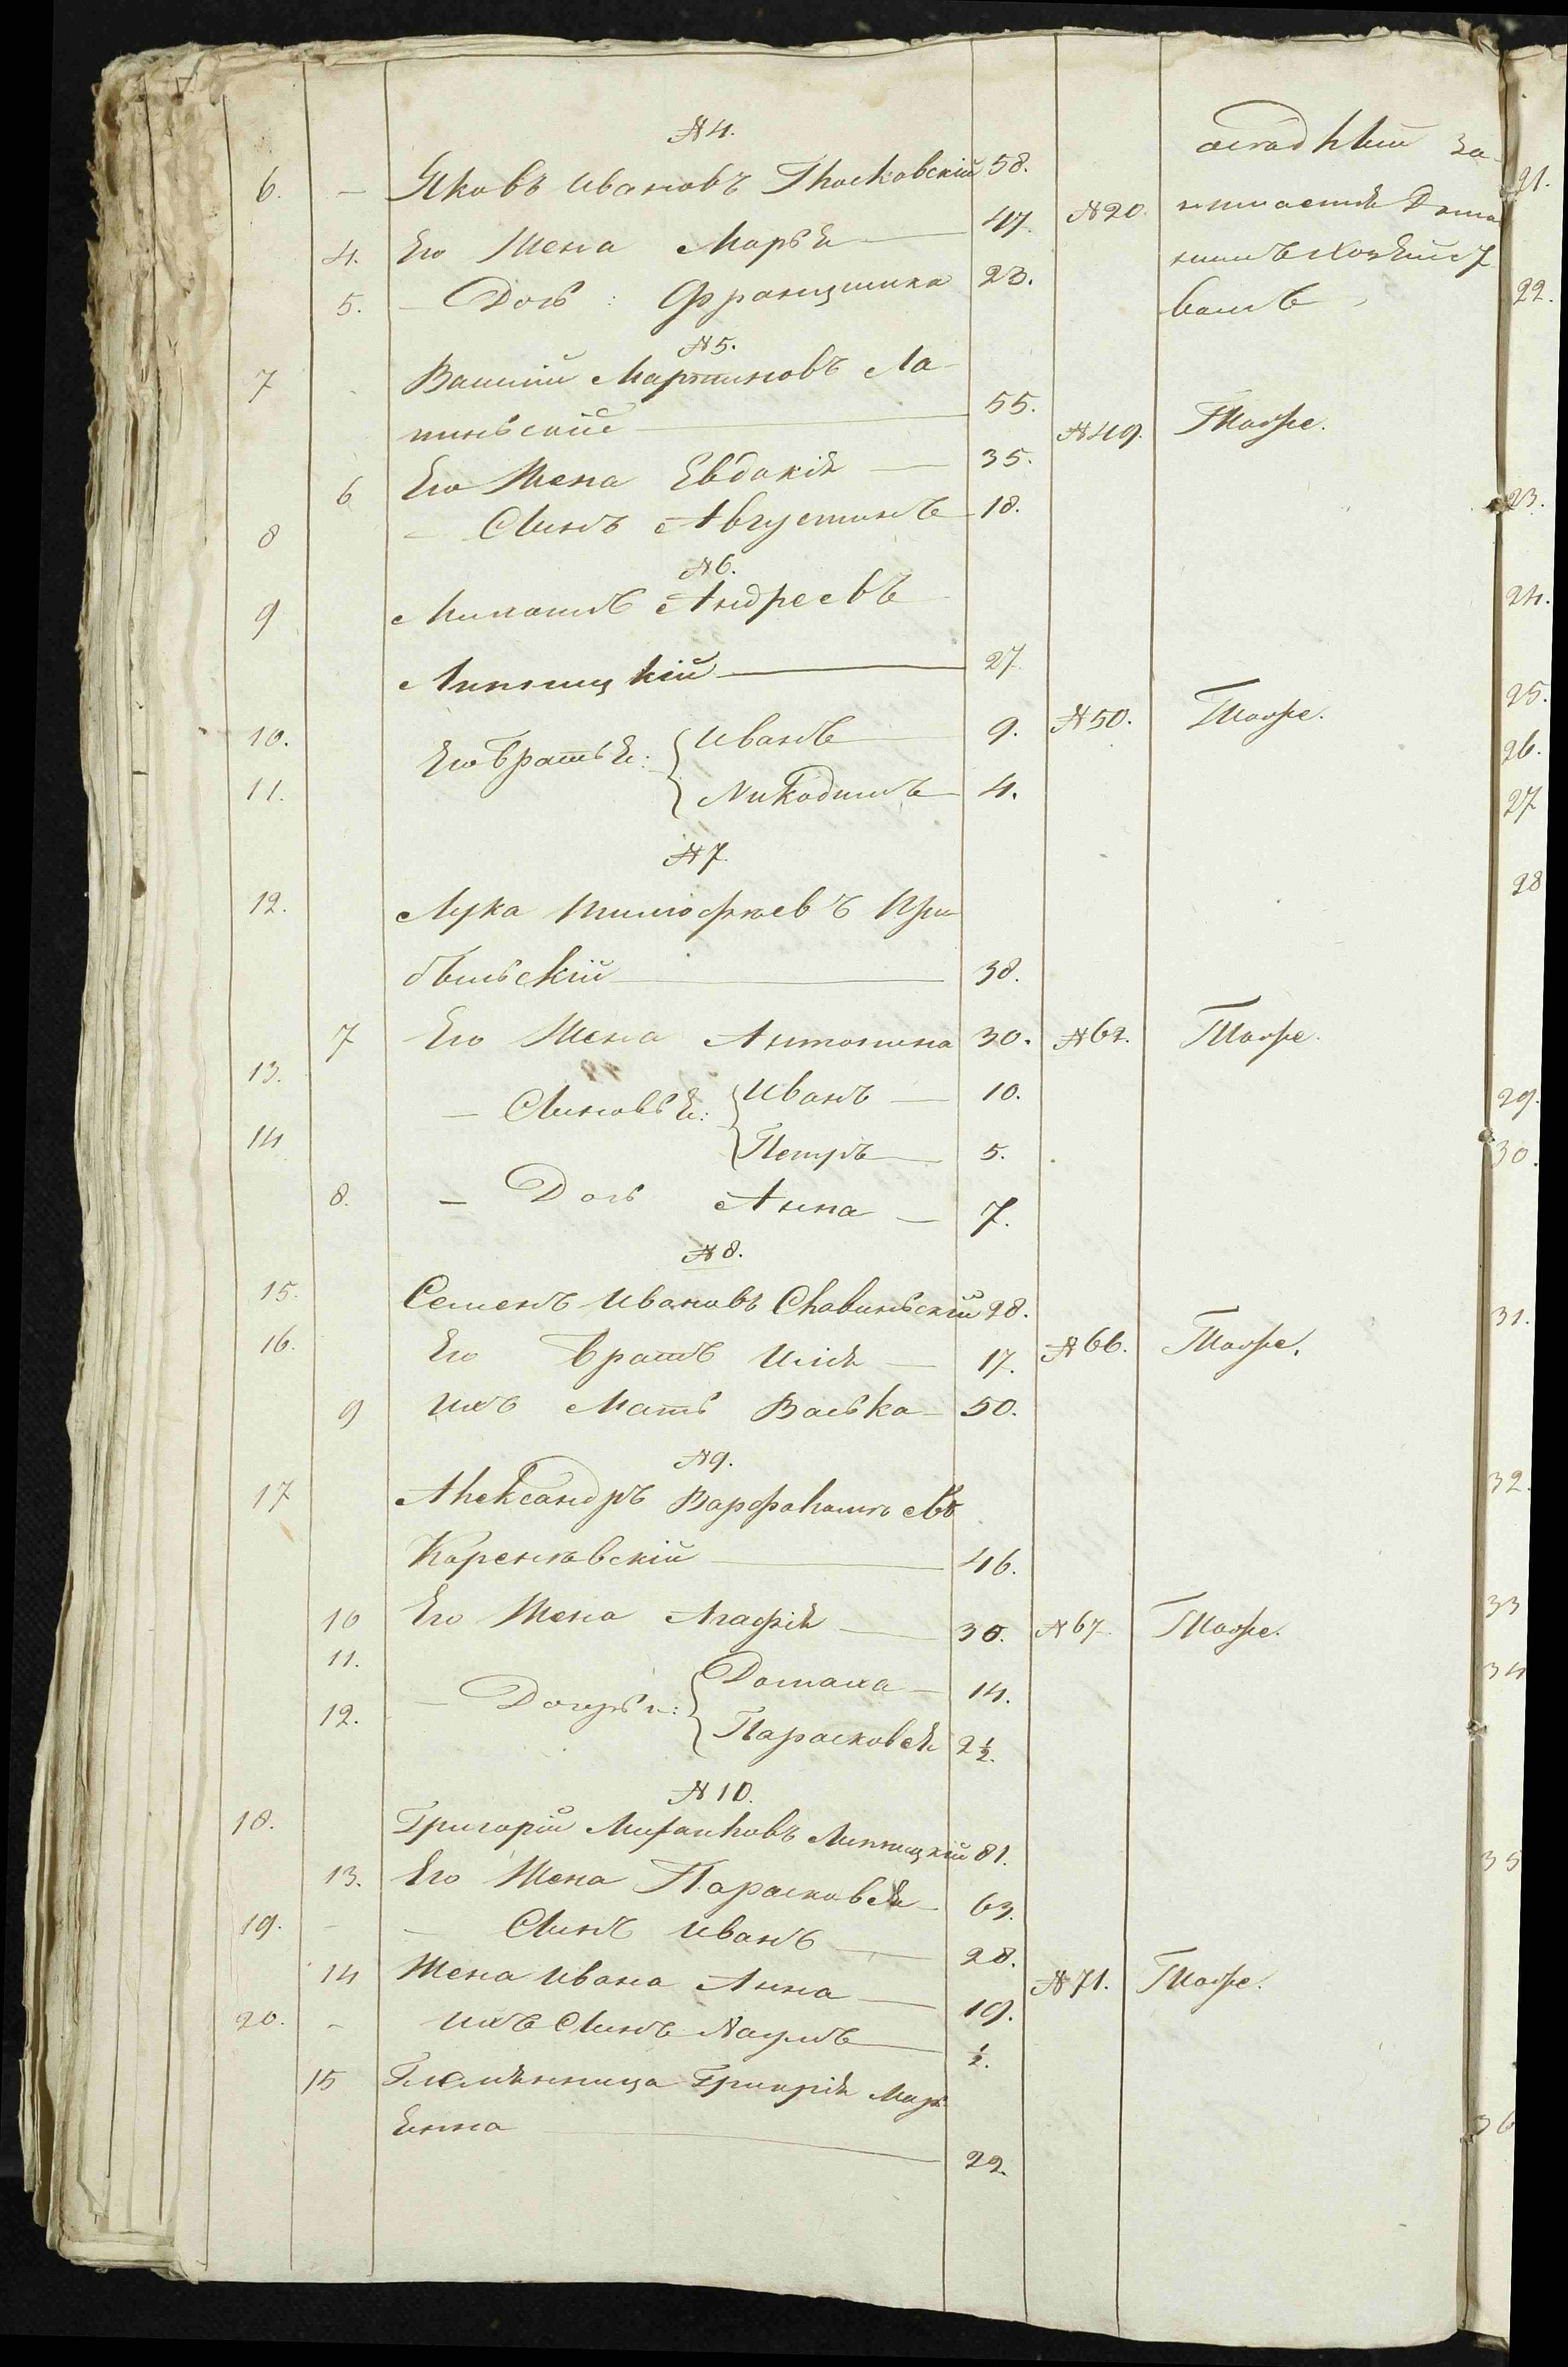 № 4.
6. — Яковъ Ивановъ 58.
4. Его Жена Марья — 47. № 20.
5. — Дочь: Францишка 23.
занимается Дома
шнимъ Хозяйст
вомъ
№ 5.
7 Мартиновъ Ла
пиньскій — 55. № 49. Тоже.
6 Его Жена Евдокія — 35.
8 — Сынъ Августинъ 18.
№ 6.
9 Андреевъ
Липницкій — 27
10. Его Братья: Иванъ — 9. № 50. Тоже.
11. Никодимъ — 4.
№ 7.
12. Лука Тимофѣевъ При
быльскій — 38.
7 Его Жена Антонина 30. № 62. Тоже.
13. — Сыновья: Иванъ — 10.
14 Петръ — 5.
8. — Дочь Анна — 7.
№ 8.
15. Семенъ Ивановъ Славиньскій 28.
16. Его Братъ Илія — 17. № 66. Тоже.
9 Ихъ Мать — 50.
№ 9.
17 Александръ Варфоломеевъ
Кореневскій — 46.
10 Его Жена Агафія — 30. № 67. Тоже.
11. — Дочери: Домаха — 14.
12. Парасковея 2½.
№ 10.
18. Григорій Михайловъ Липницкій 81.
13. Его Жена Парасковея — 63.
19. — — Сынъ Иванъ — 28.
14 Жена Ивана Анна — 19. № 71. Тоже.
20. — Ихъ Сынъ Наумъ — ½.
15 Племянница Григорія Марь
янна — 22.
21.
22.
23.
24.
25.
26.
27
28
29.
30.
31.
32.
33
34
35
36